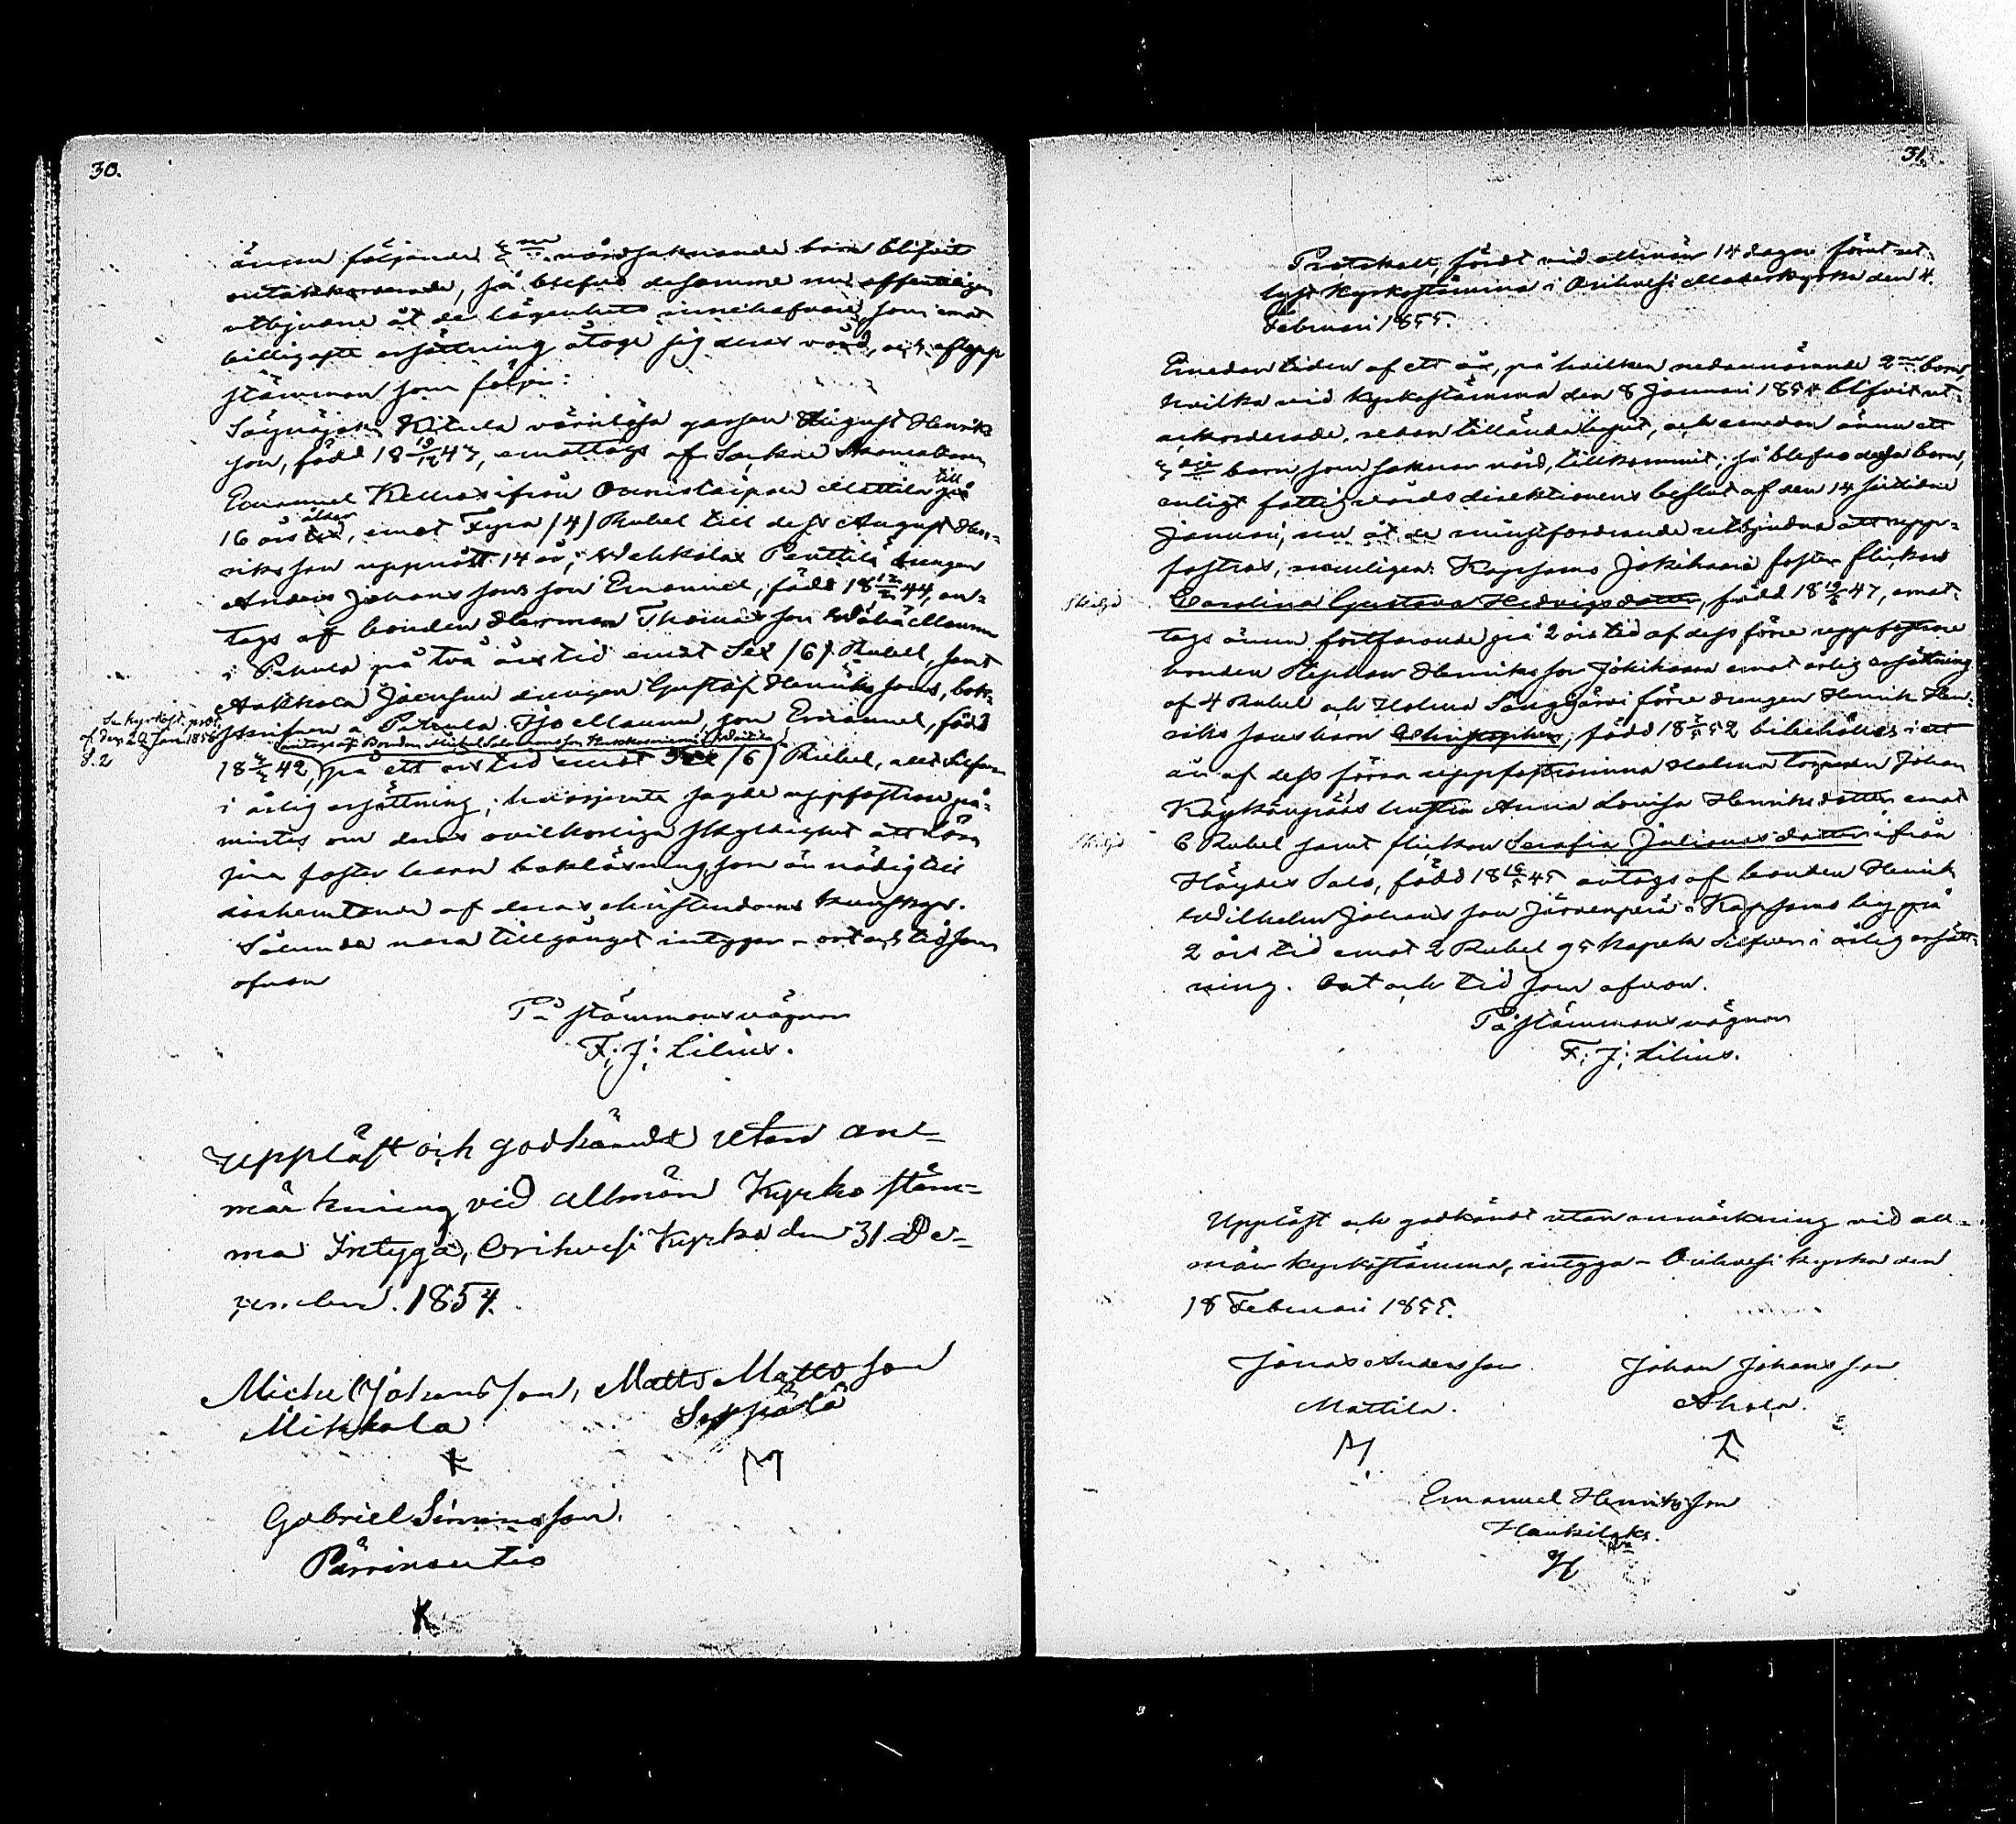 30.
ännu följande 3ne vårdsaknande barn blifvit
outackorderade, så blefvo desamme nu offentligen
utbjudne åt de lägenhets innehafvare, som emot
billigaste ersättning åtoge sig deras vård, och aflopp
stämman som följer:
Kitula värnlösa gossen August Henriks
son, född 18 19/12 47, emottogs af
Emanuel ifrån Mattila till
16 års ålder, emot Fyra /4/ Rubel till dess August Hen-
riksson uppnått 14 år; Wehkalax Penttilä drengen
Anders Johanssons son Emanuel, född 18 12/2 44, an-
togs af bonden Herman Thomasson
i Pehula på två års tid emot Sex /6/ Rubel, samt
Jaensuu drengen Gustaf Henrikssons, bok-
skrifven å son Emanuel, född
Se kyrkost. prot.
af den 20 Jan. 1856
§.2
antogs af Bonden Michel Salomonsson
18 42, på ett års tid emot Sex /6/ Rubel, allt Silfver
i årlig ersättning; hvarjemte sagde uppfostrare på-
mintes om deras ovilkorliga skyldighet att
sina foster barn boklärning, som är nödig till
inhemtande af deras christendoms kunskap.
Sålunda vara tillgånget intygar - ort och tid som
ofvan
På stämmans vägnar
F: J: Lilius.
Uppläst och godkändt utan an-
märkning vid allmän Kyrko stäm-
ma Intyga, Orihvesi Kyrka den 31 De-
zember. 1854.
Michel Johansson, Matts Mattsson
Mikkola Seppälä
K M
Gabriel Simonsson.
Pärrinsuutio
K
31.
Protokoll, fördt vid allmän 14 dagar förut ut-
lyst Kyrkostämma i Orihvesi Moderkyrka den 4.
Februari 1855.
Emedan tiden af ett år, på hvilken nedannämnde 2ne barn,
hvilka vid Kyrkostämma den 8 Januari 1854 blifvit ut-
ackorderade, redan tilländalupit, och emedan ännu ett
3dje barn som saknar vård, tillkommit; så blefvo dessa barn,
enligt fattigvårds direktionens beslut af den 14 sistledne
Januari, nu åt de minstfordrande utbjudna att upp-
fostras, nemligen: Kapsams Jokihaara foster flickan
Skiljd
Carolina Gustava Hedvigsdotter, född 18 19/6 47, emot-
togs ännu fortfarande på 2 års tid af dess förre uppfostrare
bonden Stephan Henriksson Jokihaara emot årlig ersättning
af 4 Rubel och Holma Sangijärvi förre drengen Henrik Hen-
riks sons barn Christopher, född 18 52 bibehölls i ett
år af dess förra uppfostrarinna Holma torparen Johan
hustru Anna Lovisa Henriksdotter emot
Skiljd
6 Rubel samt flickan Serafia Julianasdotter ifrån
Salo, född 18 16/5 45 antogs af bonden Henrik
Wilhelm Johansson Järvenpää i Kapsams by på
2 års tid emot 2 Rubel 95 kopek Silfver i årlig ersätt-
ning. Ort och tid som ofvan.
På stämmans vägnar
F: J: Lilius.
Uppläst och godkändt utan anmärkning vid all-
män kyrkostämma, intyga - Orihvesi kyrka den
18 Februari 1855.
Jonas Andersson Johan Johansson
Mattila. Ahola.
M
Emanuel Henriksson
H